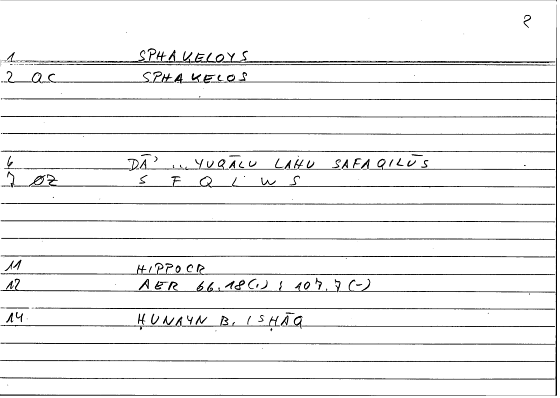 2
1 SPHAKELOYS
2 QC SPHAKELOS
6 DĀʾ ... YUQĀLU LAHU SAFAQILŪS
7 ØZ S F Q L W S
11 HIPPOCR
12 AER 66.18(,) ; 107.7 (-)
14 ḤUNAYN B. ISḤĀQ